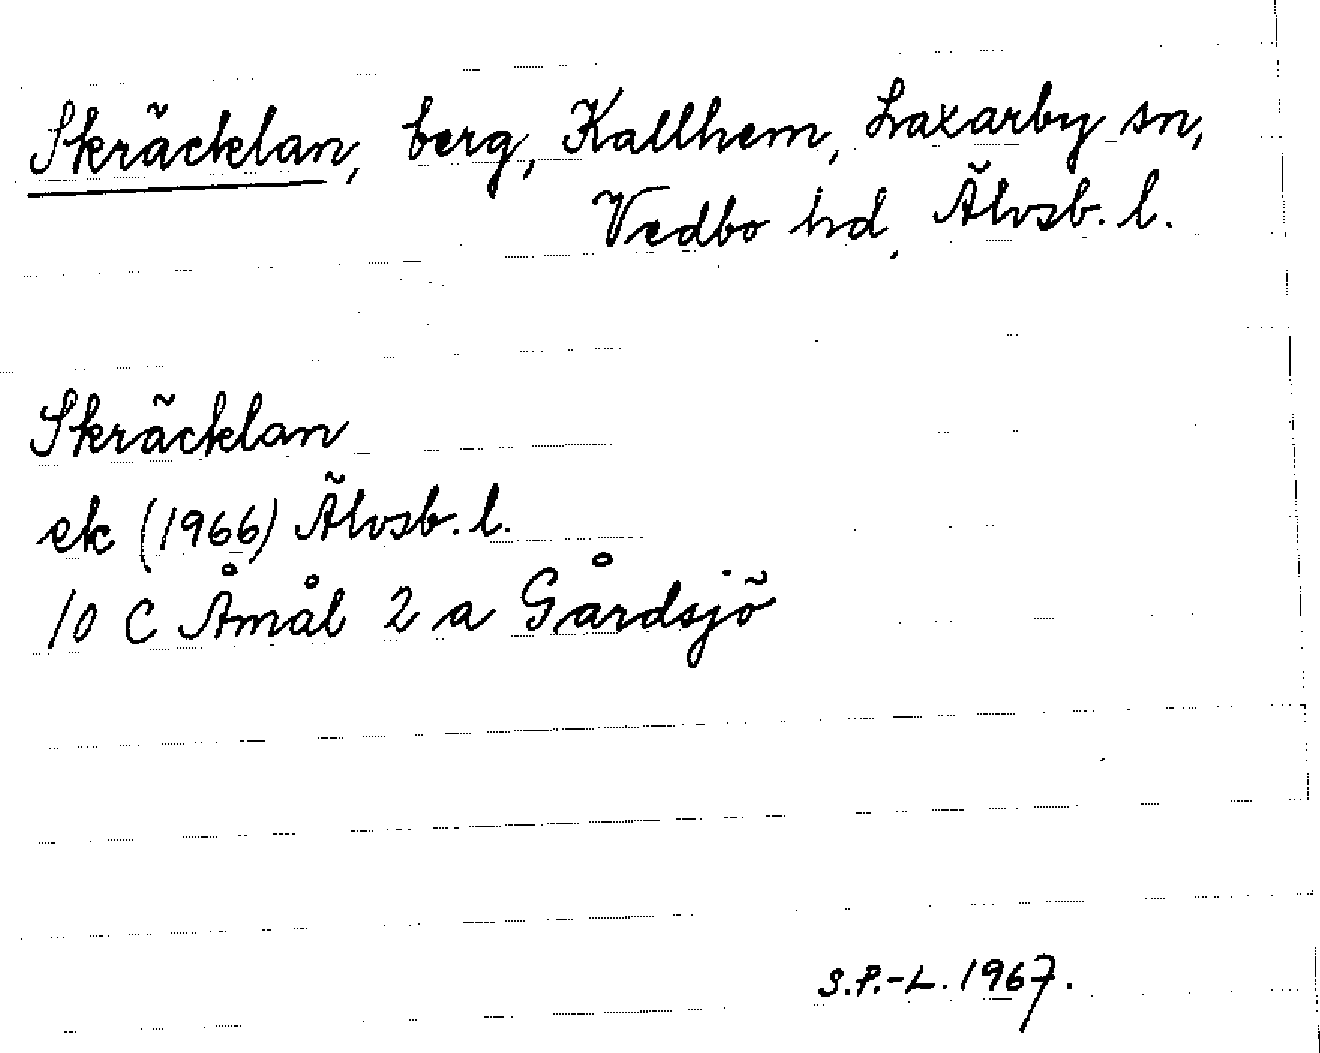 Skräcklan, berg, Kallhem, Laxarby sn,
Vedbo hd, Älvsb. l.
Skräcklan
ek (1966) Älvsb. l.
10 C Åmål 2 a Gårdsjö
S.P.-L. 1967.